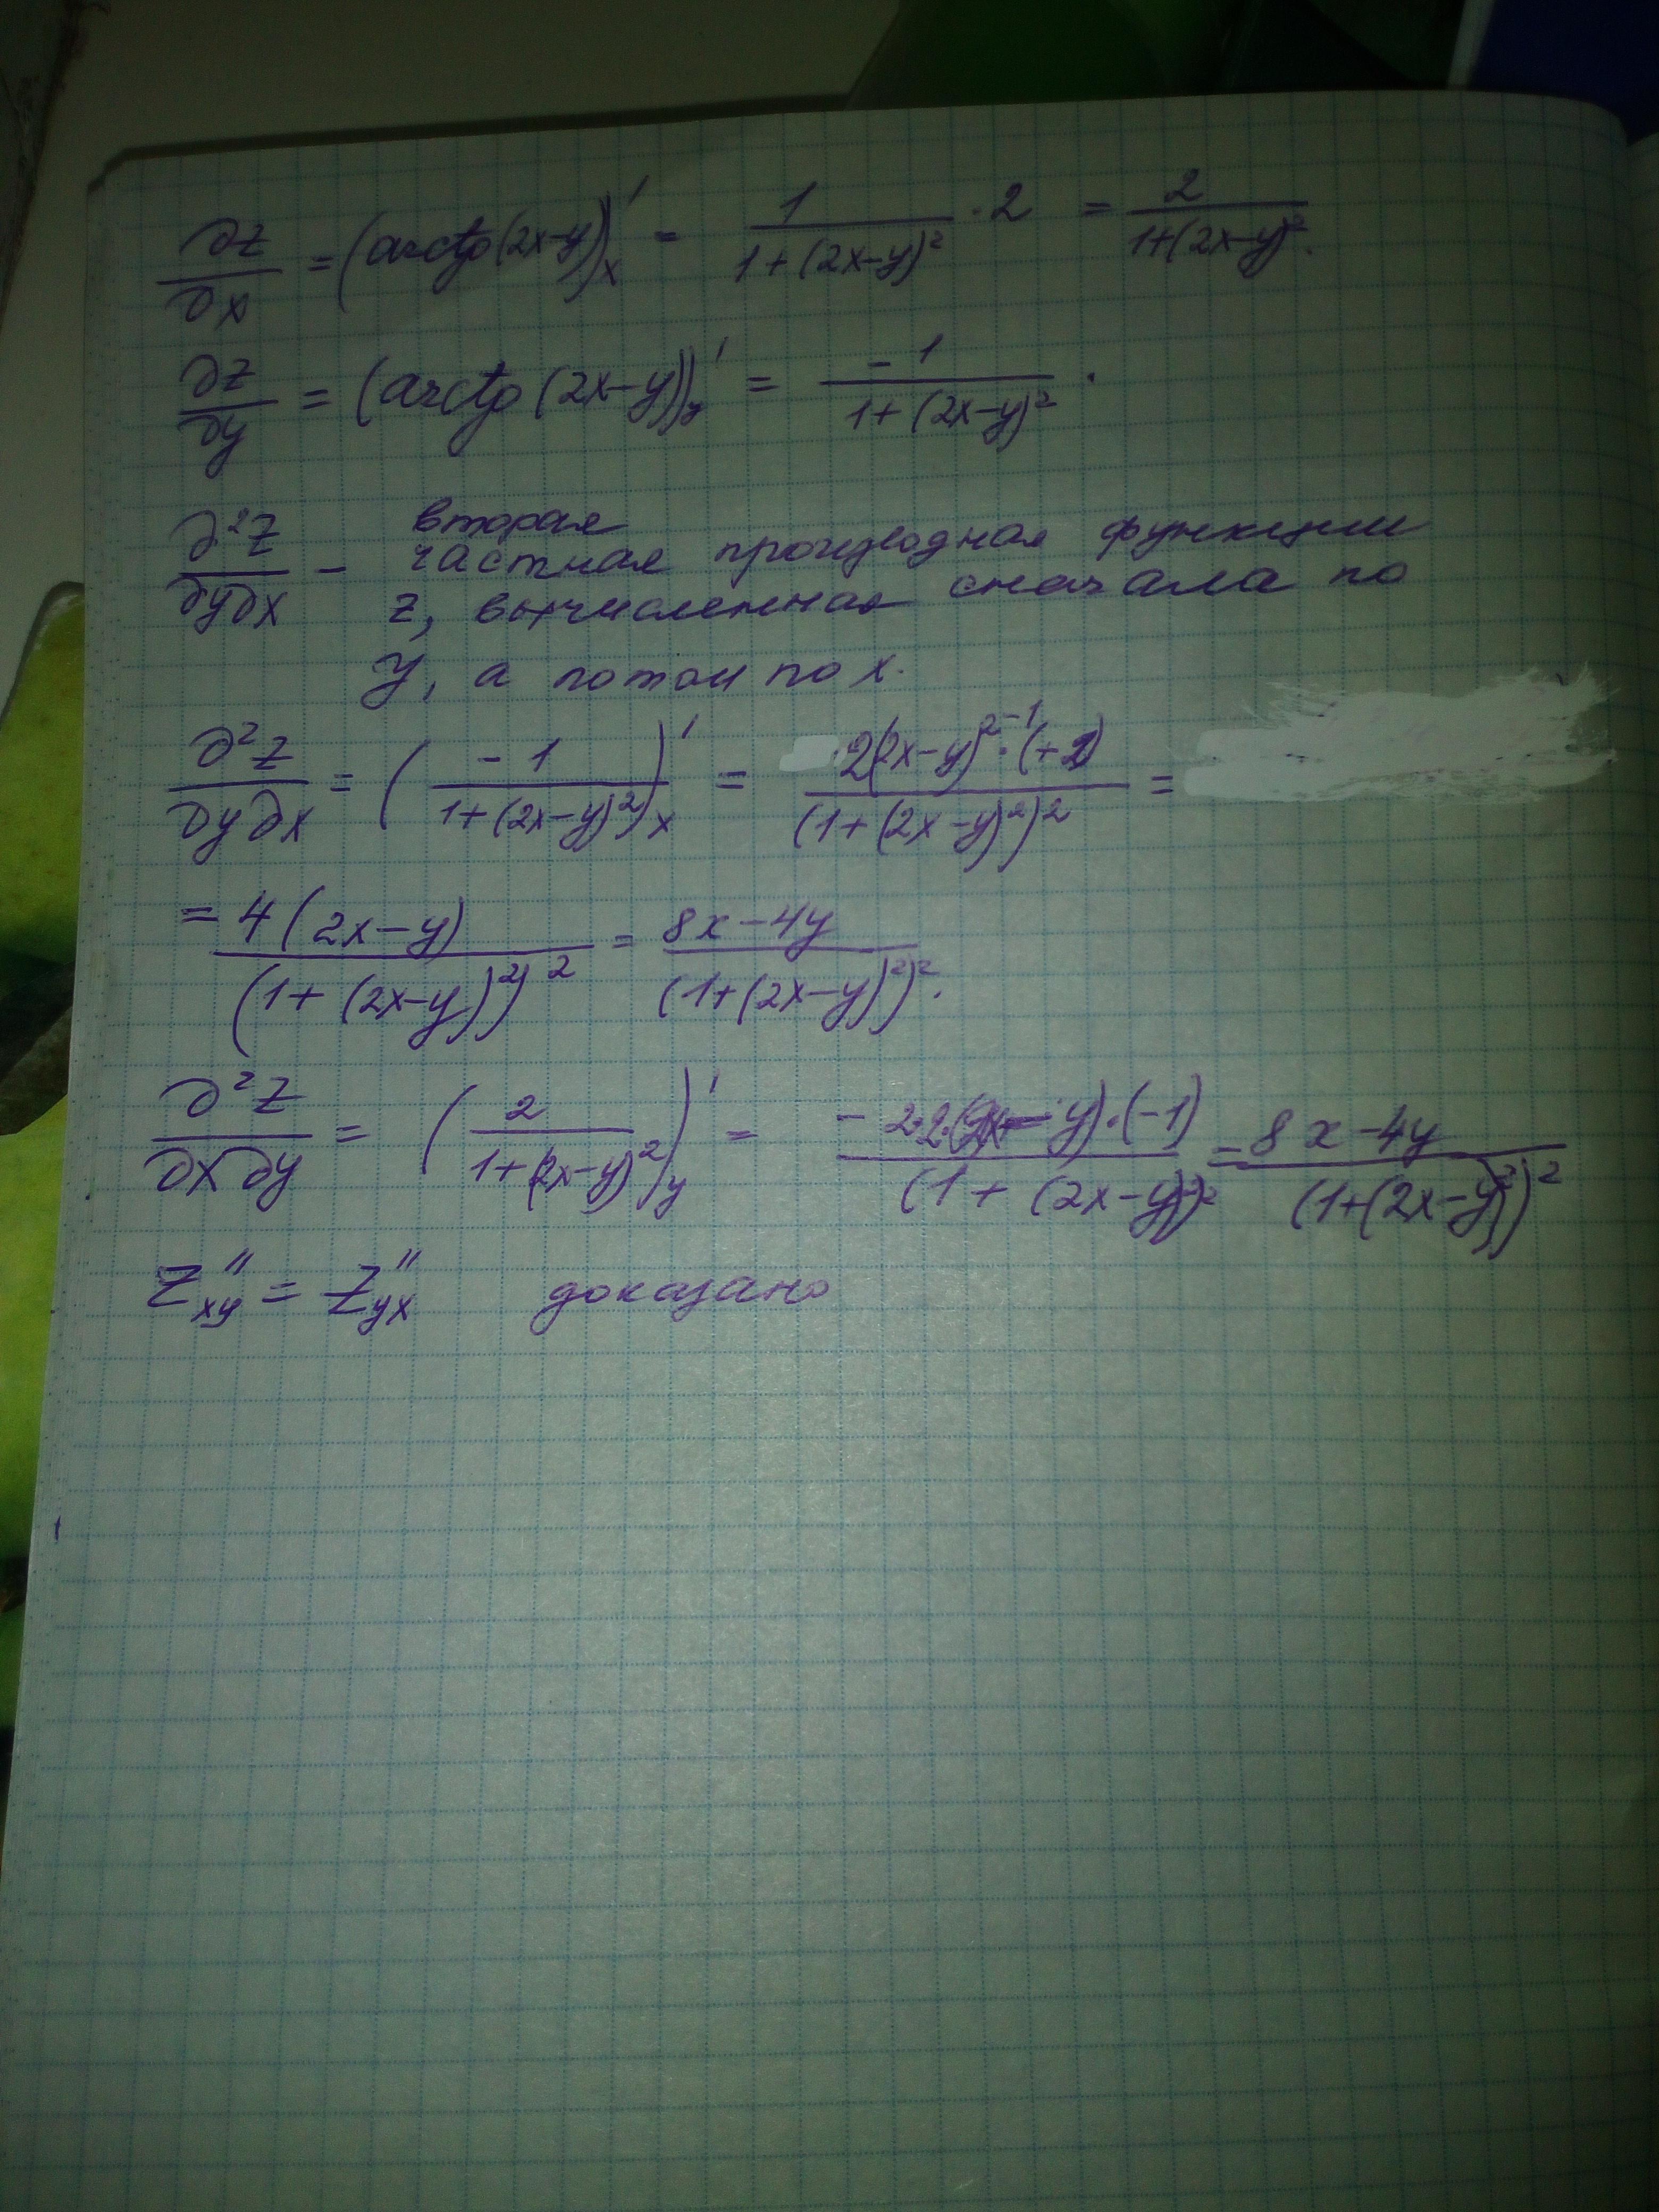 ∂z/∂x = (arctg(2x-y))'x = 1/(1+(2x-y)²) · 2 = 2/(1+(2x-y)².
∂z/∂y = (arctg(2x-y))'y = -1/(1+(2x-y)²) .
∂²z/∂y∂x - вторая
частная производная функции
z, вычисленная сначала по
y, а потом по x.
∂²z/∂y∂x = (-1/(1+(2x-y)²))'x = 2(2x-y)²⁻¹·(+2)/(1+(2x-y)²)² =
= 4(2x-y)/(1+(2x-y)²)² = 8x-4y/(1+(2x-y)²)².
∂²z/∂x∂y = (2/(1+(2x-y)²))'y = -2·2·(2x-y)·(-1)/(1+(2x-y)²)² = 8x-4y/(1+(2x-y)²)²
Z''xy = Z''yx доказано